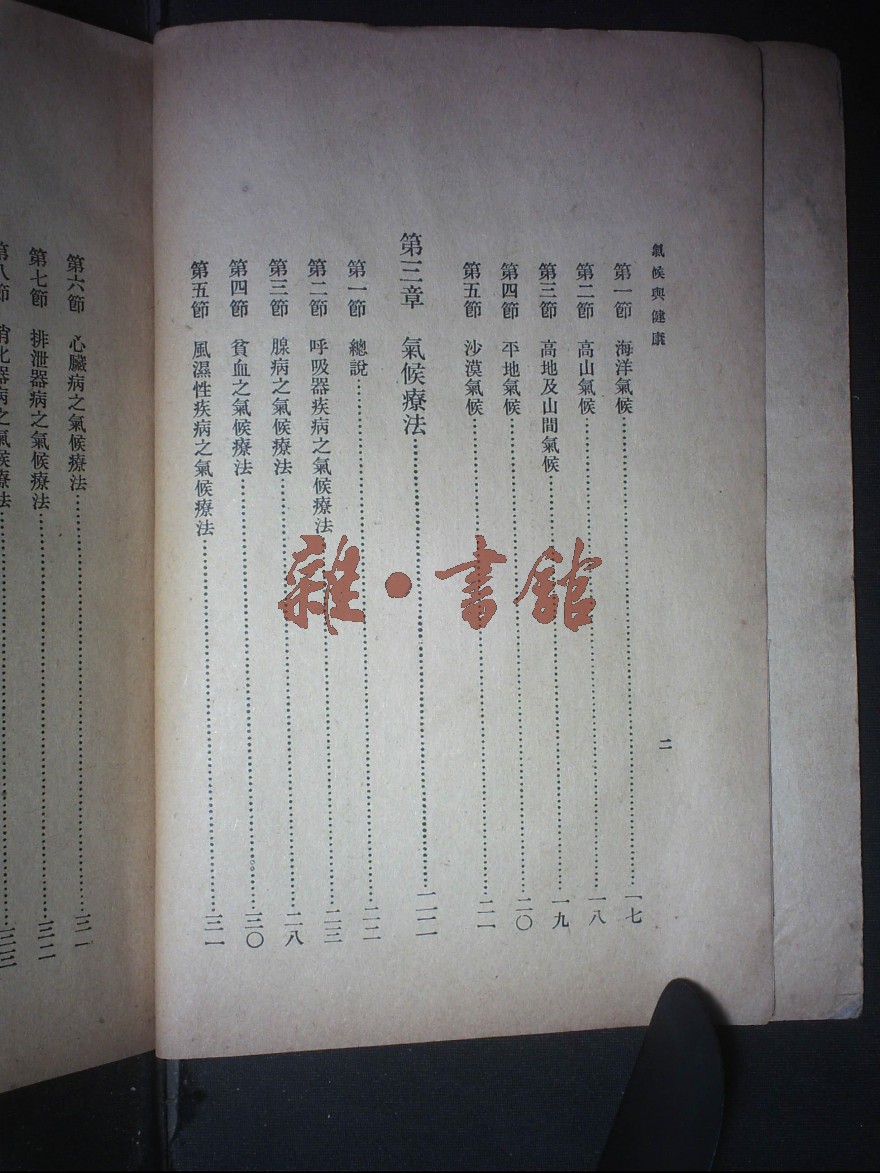 氣候與健康
二
第一節 海洋氣候……一七
第二節 高山氣候……一八
第三節 高地及山間氣候……一九
第四節 平地氣候……二〇
第五節 沙漠氣候……二一
第三章 氣候療法……二二
第一節 總說……二二
第二節 呼吸器疾病之氣候療法……二三
第三節 腺病之氣候療法……二八
第四節 貧血之氣候療法……三〇
第五節 風濕性疾病之氣候療法……三一
第六節 心臟病之氣候療法……三一
第七節 排泄器病之氣候療法……三二
第八節 消化器病之氣候療法……三三
雜·書館